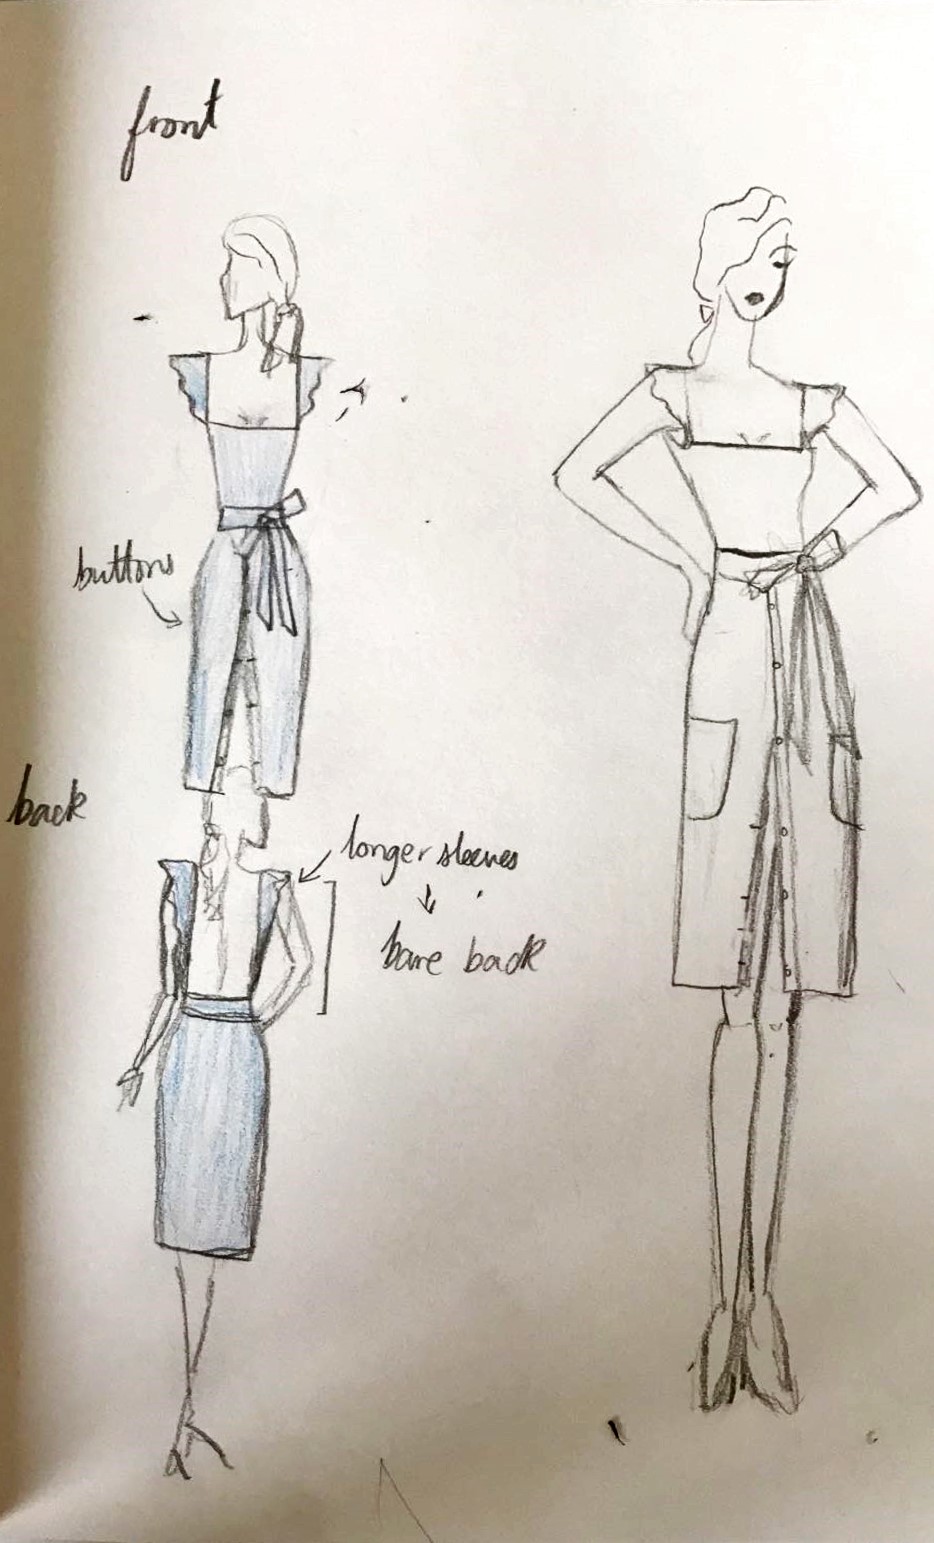 front
buttons
back
longer sleeves
bare back